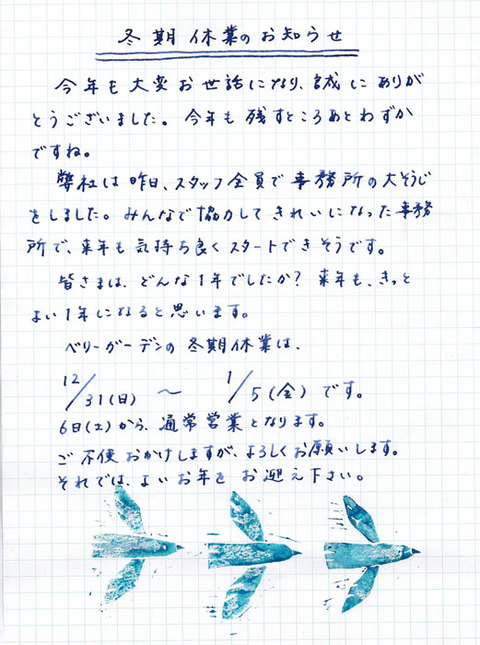 冬期休業のお知らせ
今年も大変お世話になり、誠にありが
とうございました。今年も残すところあとわずか
ですね。
弊社は昨日、スタッフ全員で事務所の大そうじ
をしました。みんなで協力してきれいになった事務
所で、来年も気持ち良くスタートできそうです。
皆さまは、どんな1年でしたか？来年も、きっと
よい1年になると思います。
ベリーガーデンの冬期休業は、
12/31(日) 〜 1/5(金)です。
6日(土)から、通常営業となります。
ご不便おかけしますが、よろしくお願いします。
それでは、よいお年をお迎え下さい。